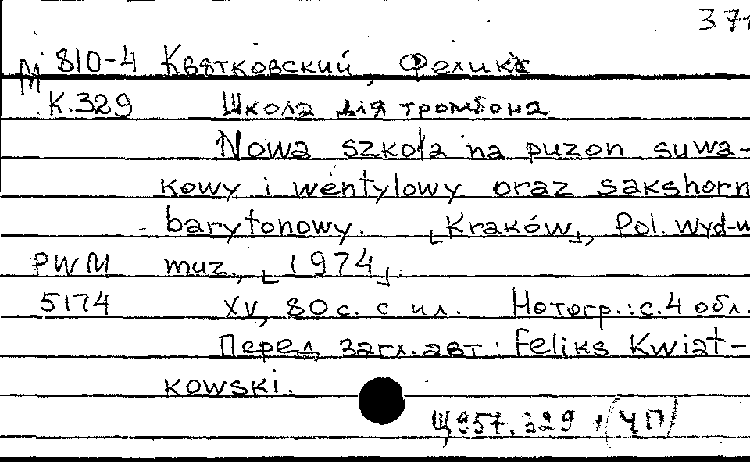 371
М 810-4 Квятковский, Феликс
К.329 Школа для тромбона
Nowa szkoła na puzon suwa-
kowy i wentylowy oraz sakshorn
barytonowy. [Kraków], Pol. Wyd-w
PWM muz., [1974].
5174 XV, 80 с. с ил. Нотогр.: с. 4 обл.
Перед загл. авт.: Feliks Kwiat-
kowski.
Ц957.329 (ЧП)